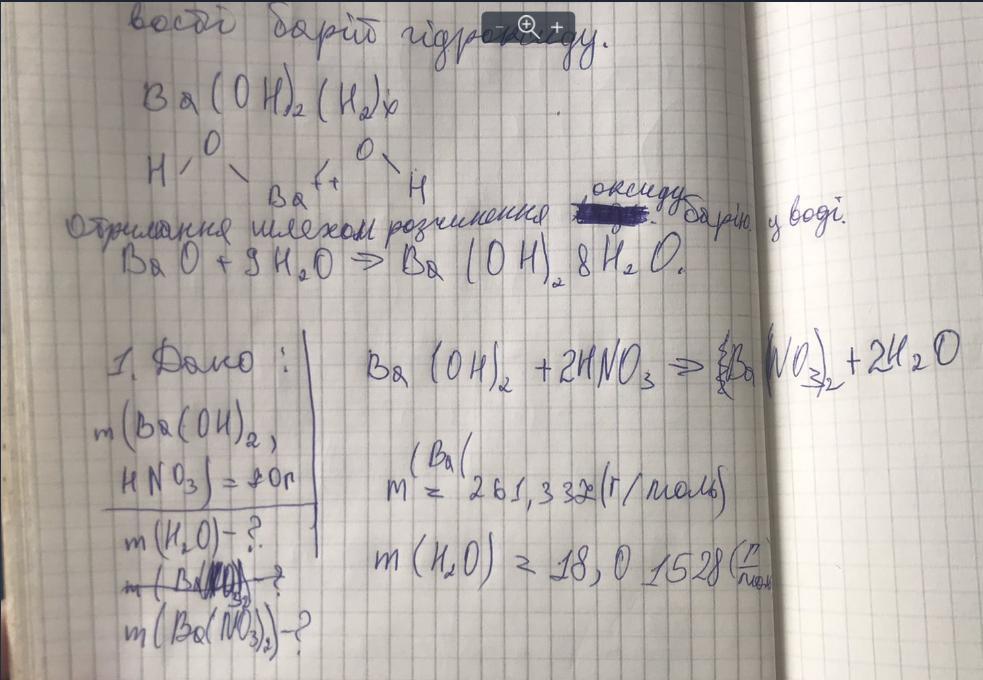 вості барій гідроксиду.
Ba(OH)₂(H₂)x
H O Ba⁺⁺ O H
Отримання шляхом розчинення оксиду барію у воді.
BaO + 9H₂O ⇒ Ba(OH)₂ 8H₂O.
1. Дано:
m(Ba(OH)₂,
HNO₃) = 10г
m(H₂O) - ?
m(Ba(NO₃)₂) - ?
Ba(OH)₂ + 2HNO₃ ⇒ Ba(NO₃)₂ + 2H₂O
(Ba(
m = 261,332(г/моль)
m(H₂O) = 18,01528(г/моль